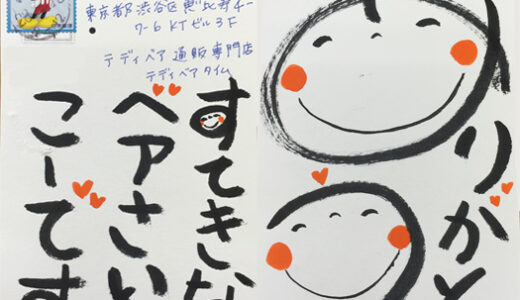 東京都渋谷区恵比寿4-
7-6 KTビル3F
テディベア通販専門店
テディベアタイム
すてきな
ベアさい
こーです
りがと